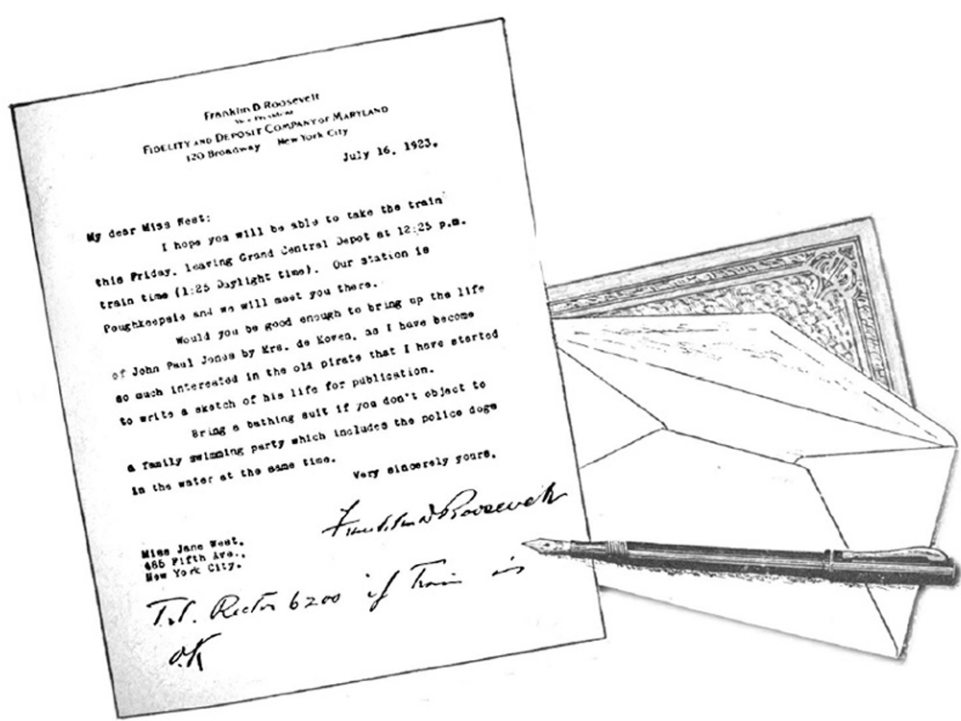 Franklin D. Roosevelt
Vice President
FIDELITY AND DEPOSIT COMPANY OF MARYLAND
120 Broadway New York City
July 16, 1923.
My dear Miss West:
I hope you will be able to take the train
this Friday, leaving Grand Central Depot at 12:25 p.m.
train time (1:25 Daylight time). Our station is
Poughkeepsie and we will meet you there.
Would you be good enough to bring up the life
of John Paul Jones by Mrs. de Koven, as I have become
so much interested in the old pirate that I have started
to write a sketch of his life for publication.
Bring a bathing suit if you don't object to
a family swimming party which includes the police dogs
in the water at the same time.
Very sincerely yours,
Franklin D Roosevelt
Miss Jane West,
485 Fifth Ave.,
New York City.
Tel. Rector 6200 if Train is
O.K